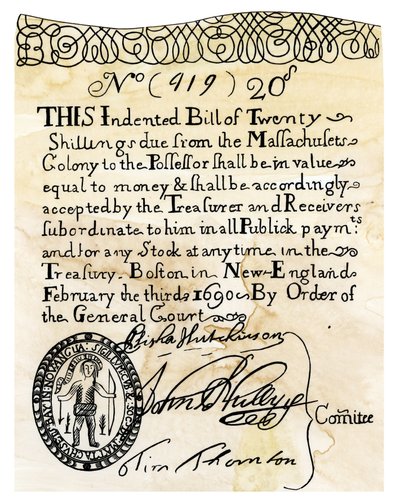 No (919) 20s
THIS Indented Bill of Twenty
Shillings due from the Massachusets
Colony to the Possessor shall be in value
equal to money & shall be accordingly
accepted by the Treasurer and Receivers
subordinate to him in all Publick paymts:
and for any Stock at any time in the
Treasury. Boston in New-England
February the third 1690. By Order of
the General Court
Elisha Hutchinson
Comitee
Tim Thornton